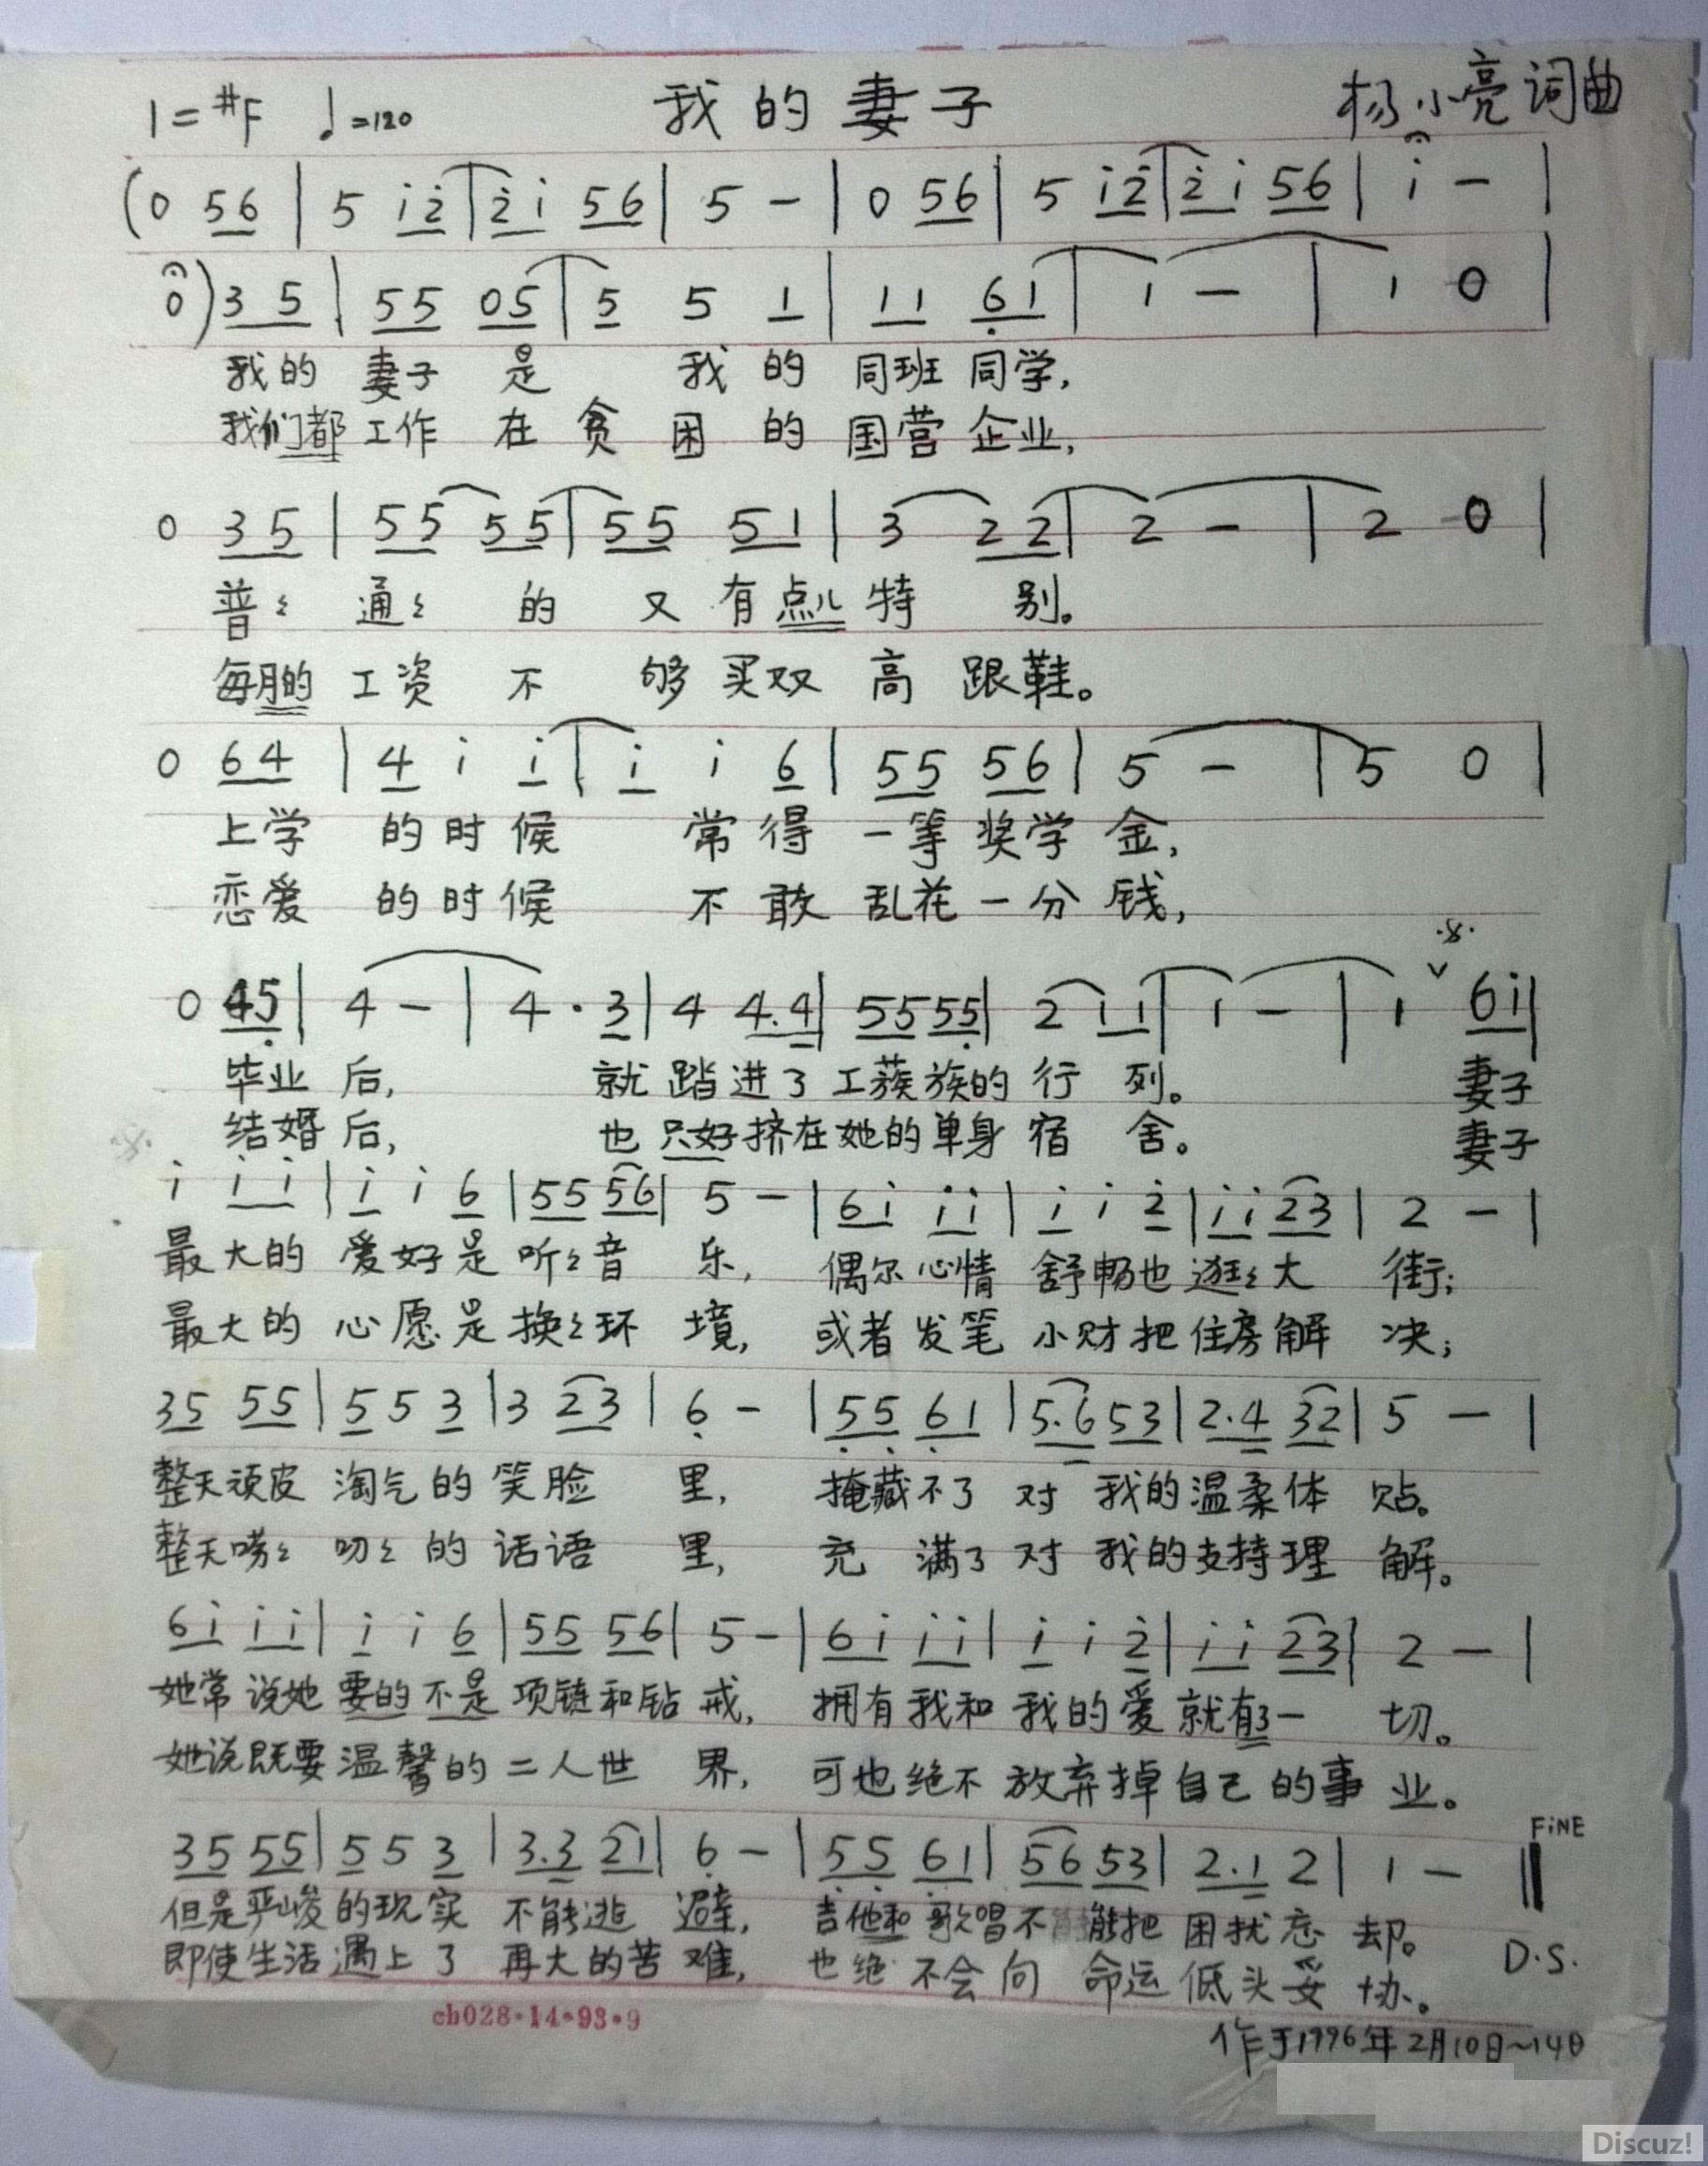 1=#F ♩=120 我的妻子 杨小亮词曲
(0 56 | 5 i2 | 2i 56 | 5 - | 0 56 | 5 i2 | 2i 56 | i - |
0) 35 | 55 05 | 5 5 1 | 11 61 | 1 - | 1 0 |
我的 妻子 是 我 的 同班 同学,
我们都 工作 在 贫 困 的 国营 企业,
0 35 | 55 55 | 55 51 | 3 22 | 2 - | 2 0 |
普々 通々 的 又 有点儿 特 别。
每月的 工资 不 够 买双 高 跟鞋。
0 64 | 4 i i | i i 6 | 55 56 | 5 - | 5 0 |
上学 的时候 常得 一等奖学金,
恋爱 的时候 不敢 乱花一分钱,
0 45 | 4 - | 4 · 3 | 4 4.4 | 55 55 | 2 11 | 1 - | 1 ∨ 6i |
毕业 后, 就 踏进了 工薪族的 行 列。 妻子
结婚 后, 也 只好挤在她的单身 宿 舍。 妻子
i i i | i i 6 | 55 56 | 5 - | 6i ii | i i 2 | ii 23 | 2 - |
最大的 爱好是 听々音 乐, 偶尔心情 舒畅也 逛々大 街;
最大的 心愿是 换々环 境, 或者发笔 小财把 住房解 决;
35 55 | 5 5 3 | 3 23 | 6 - | 55 61 | 5.6 53 | 2.4 32 | 5 - |
整天顽皮 淘气的 笑脸 里, 掩藏不了 对 我的温柔体 贴。
整天唠々 叨々的 话语 里, 充 满了 对 我的支持理 解。
6i ii | i i 6 | 55 56 | 5 - | 6i ii | i i 2 | ii 23 | 2 - |
她常说她 要的不是 项链和钻 戒, 拥有我和 我的爱 就有了一 切。
她说既要 温馨的 二人世 界, 可也绝不 放弃掉 自己的事 业。
35 55 | 5 5 3 | 3.3 21 | 6 - | 55 61 | 56 53 | 2.1 2 | 1 - ‖ FiNE
但是严峻的现实 不能逃 避, 吉他和歌唱不能把 困扰忘 却。
即使生活遇上了 再大的苦 难, 也绝不会向 命运低头妥 协。 D.S.
ch028·14·93·9
作于1996年2月10日~14日
Discuz!